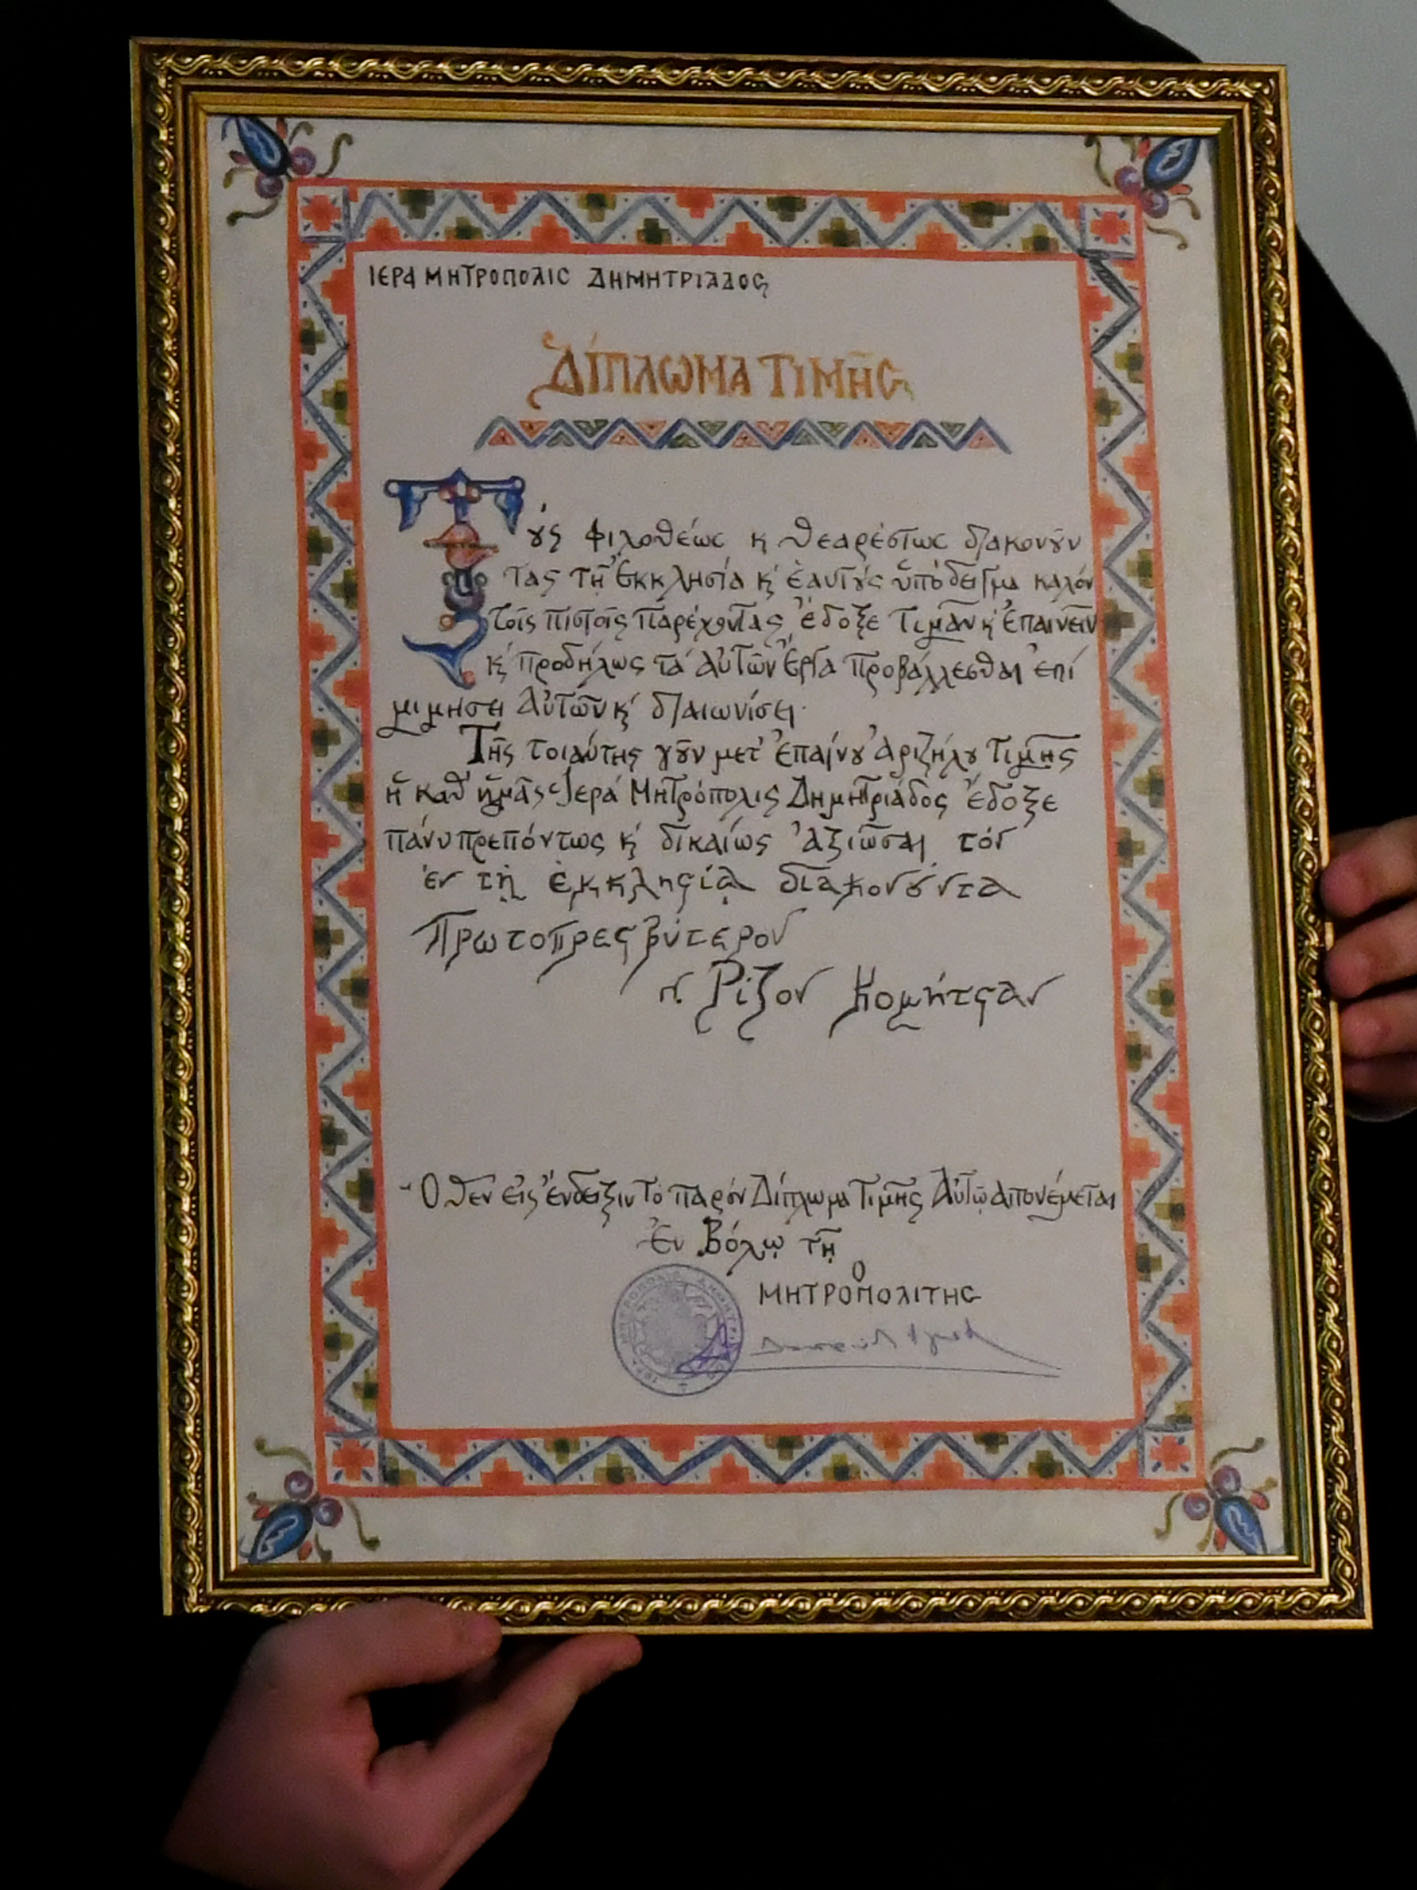 ΙΕΡΑ ΜΗΤΡΟΠΟΛΙΣ ΔΗΜΗΤΡΙΑΔΟΣ
ΔΙΠΛΩΜΑ ΤΙΜΗΣ
Τȣ́ς φιλοθέως κ̀ θεαρέστως διακονȣ̃ν
τας τῇ Ἐκκλησίᾳ κ̀ ἑαυτȣ́ς ὑπόδειγμα καλόν
τοῖς πιστοῖς παρέχοντας ἔδοξε τιμᾶν κ̀ ἐπαινεῖν
κ̀ προδήλως τά αὐτῶν ἔργα προβάλλεσθαι ἐπί
μιμήσει αὐτῶν κ̀ διαιωνίσει.
Τῆς τοιαύτης γοῦν μετ' ἐπαίνȣ ἀριζήλȣ τιμῆς
ἡ καθ' ἡμᾶς Ἱερά Μητρόπολις Δημητριάδος ἔδοξε
πάνυ πρεπόντως κ̀ δικαίως ἀξιῶσαι τόν
ἐν τῇ ἐκκλησίᾳ διακονȣ̃ντα
Πρωτοπρεσβύτερον
π. Ρίζον Κομήτσαν
Ὅθεν εἰς ἔνδειξιν τό παρόν Δίπλωμα Τιμῆς Αὐτῷ ἀπονέμεται
Ἐν Βόλῳ τῇ
Ο
ΜΗΤΡΟΠΟΛΙΤΗΣ